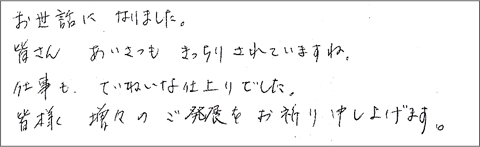 お世話に なりました。
皆さん あいさつも きっちりされていますね。
仕事も、ていねいな仕上りでした。
皆様 増々の ご発展を お祈り申し上げます。